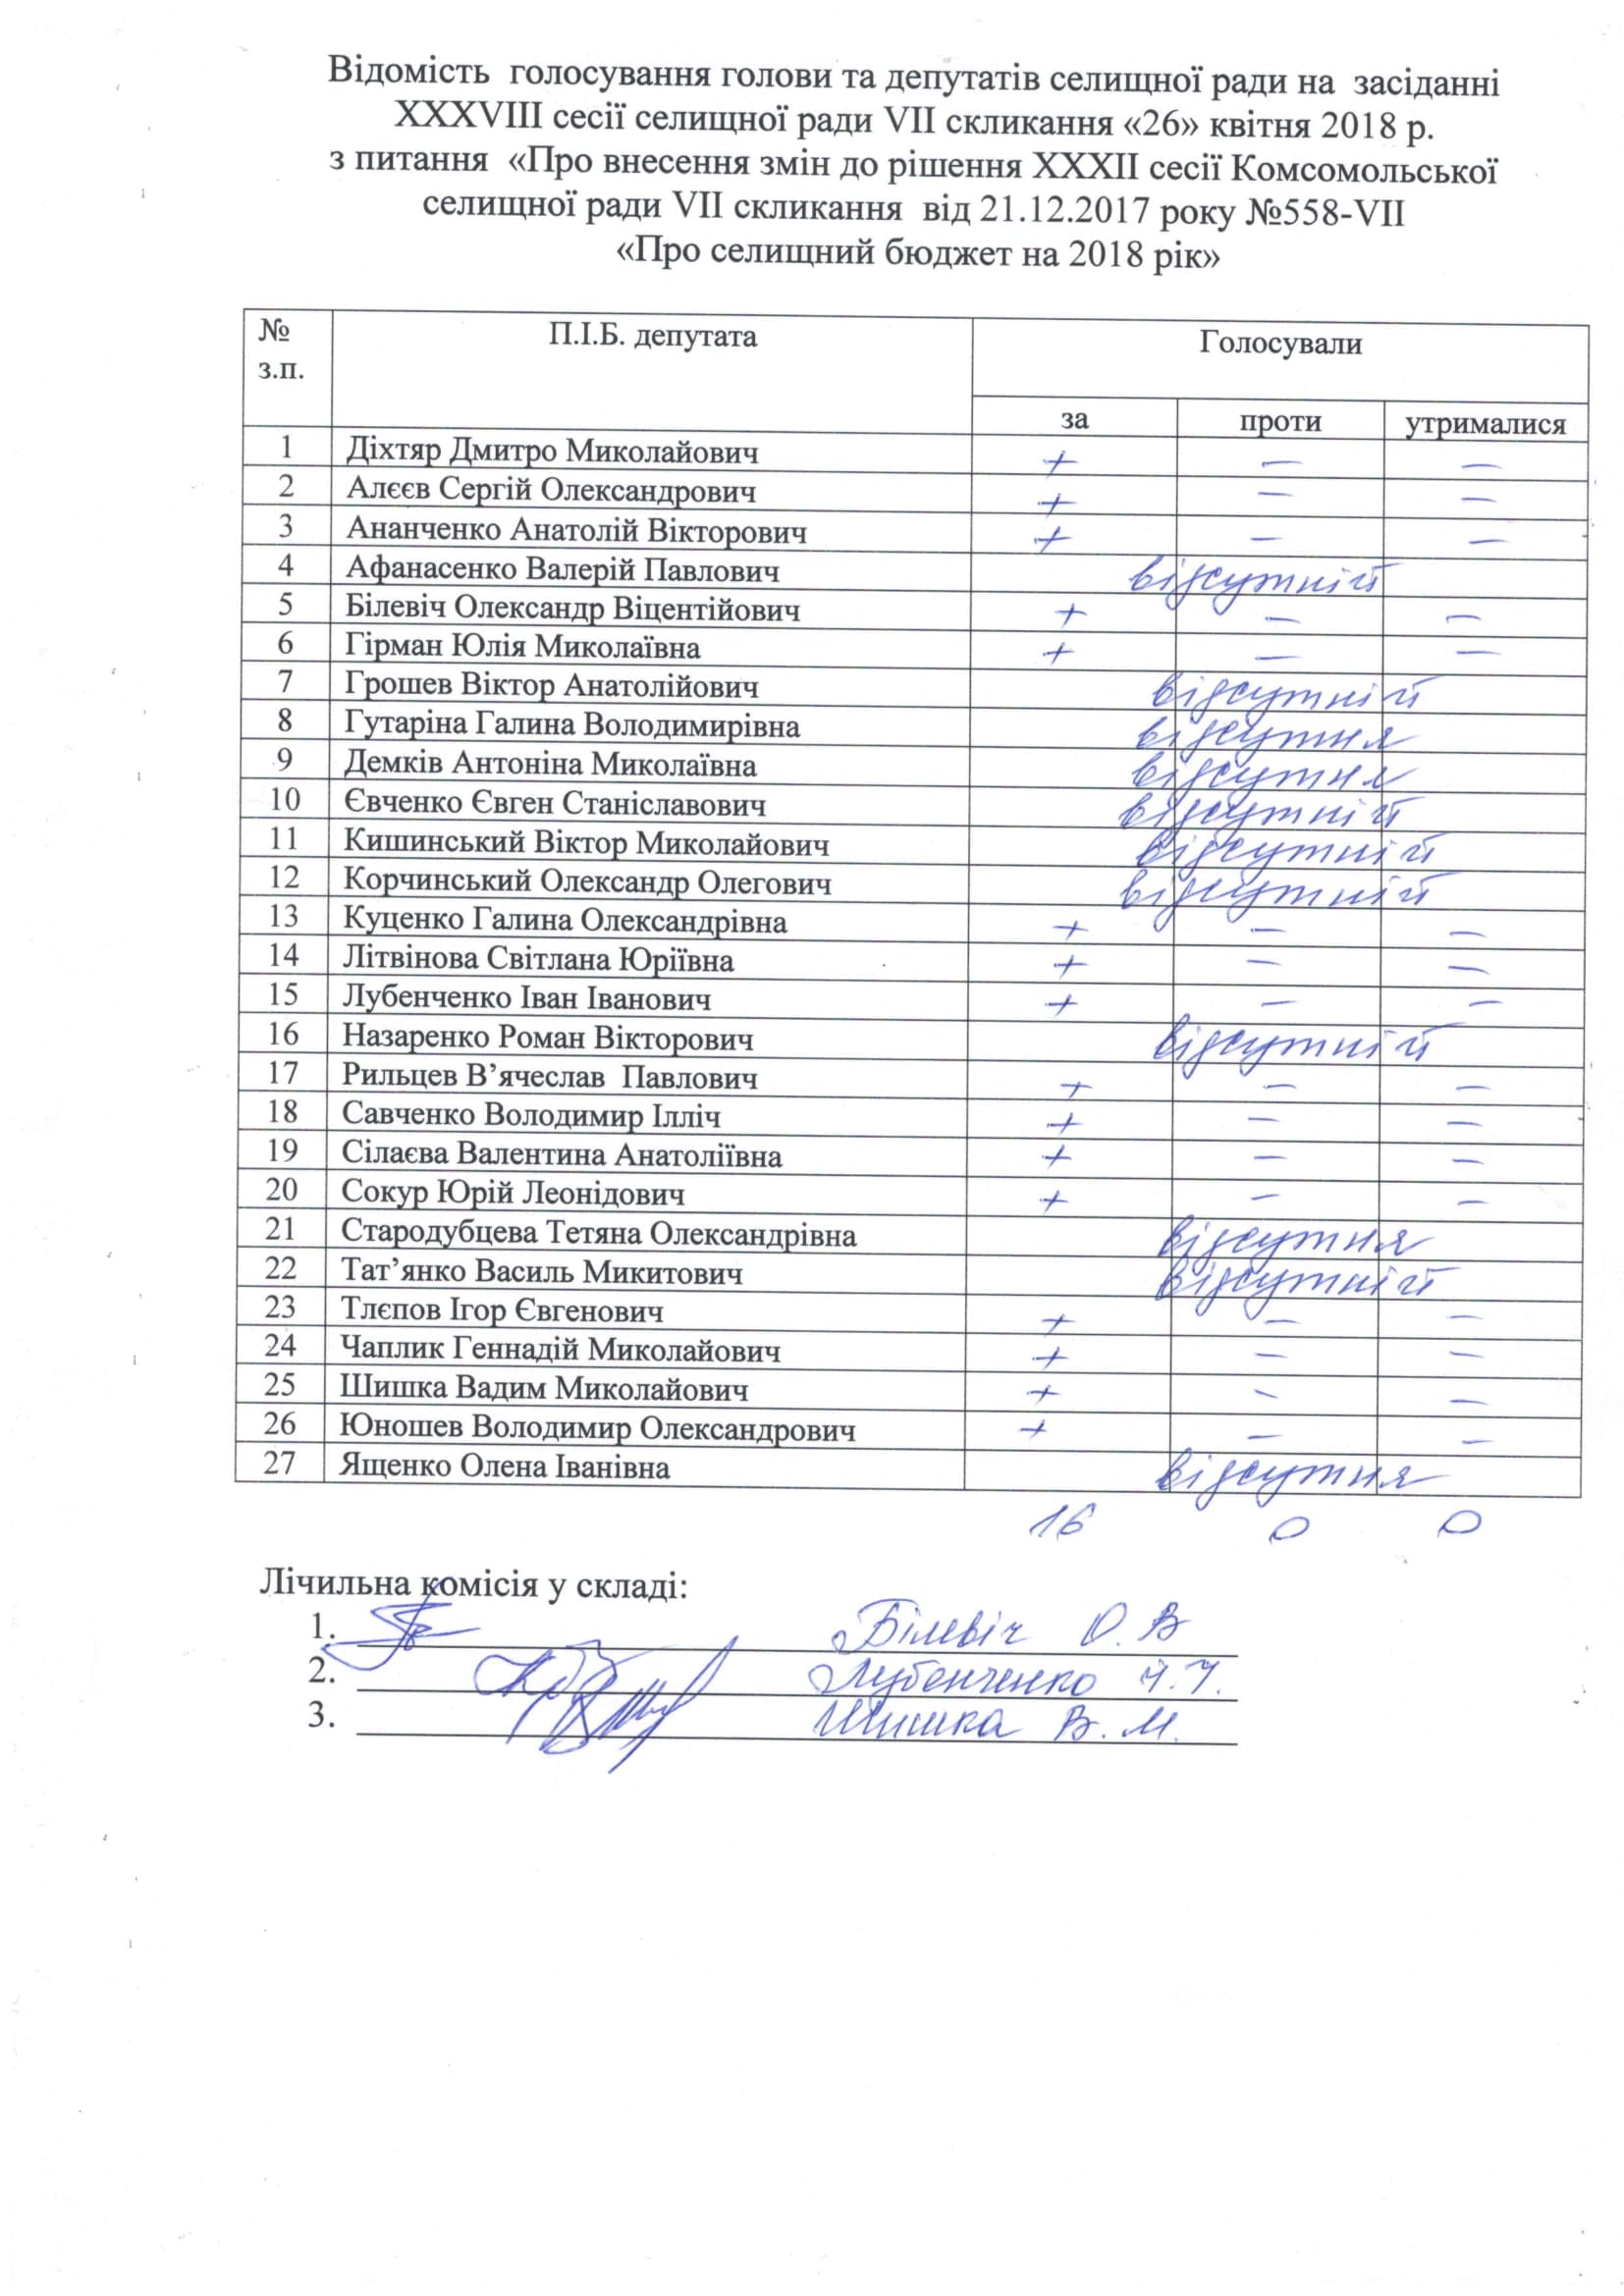 Відомість голосування голови та депутатів селищної ради на засіданні
XXXVIII сесії селищної ради VII скликання «26» квітня 2018 р.
з питання «Про внесення змін до рішення XXXII сесії Комсомольської
селищної ради VII скликання від 21.12.2017 року №558-VII
«Про селищний бюджет на 2018 рік»
№ з.п. П.І.Б. депутата Голосували
за проти утрималися
1 Діхтяр Дмитро Миколайович + – –
2 Алєєв Сергій Олександрович + – –
3 Ананченко Анатолій Вікторович + – –
4 Афанасенко Валерій Павлович відсутній
5 Білевіч Олександр Віцентійович + – –
6 Гірман Юлія Миколаївна + – –
7 Грошев Віктор Анатолійович відсутній
8 Гутаріна Галина Володимирівна відсутня
9 Демків Антоніна Миколаївна відсутня
10 Євченко Євген Станіславович відсутній
11 Кишинський Віктор Миколайович відсутній
12 Корчинський Олександр Олегович відсутній
13 Куценко Галина Олександрівна + – –
14 Літвінова Світлана Юріївна + – –
15 Лубенченко Іван Іванович + – –
16 Назаренко Роман Вікторович відсутній
17 Рильцев В’ячеслав Павлович + – –
18 Савченко Володимир Ілліч + – –
19 Сілаєва Валентина Анатоліївна + – –
20 Сокур Юрій Леонідович + – –
21 Стародубцева Тетяна Олександрівна відсутня
22 Тат’янко Василь Микитович відсутній
23 Тлєпов Ігор Євгенович + – –
24 Чаплик Геннадій Миколайович + – –
25 Шишка Вадим Миколайович + – –
26 Юношев Володимир Олександрович + – –
27 Ященко Олена Іванівна відсутня
16 0 0
Лічильна комісія у складі:
1. Білевіч О. В
2. Лубенченко І.І.
3. Шишка В. М.